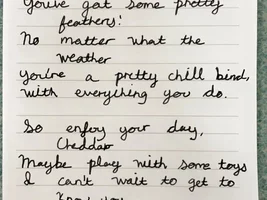 You've got some pretty
feathers!
No matter what the
weather
You're a pretty chill bird,
with everything you do.
So enjoy your day,
Cheddar
Maybe play with some toys
I can't wait to get to
know you